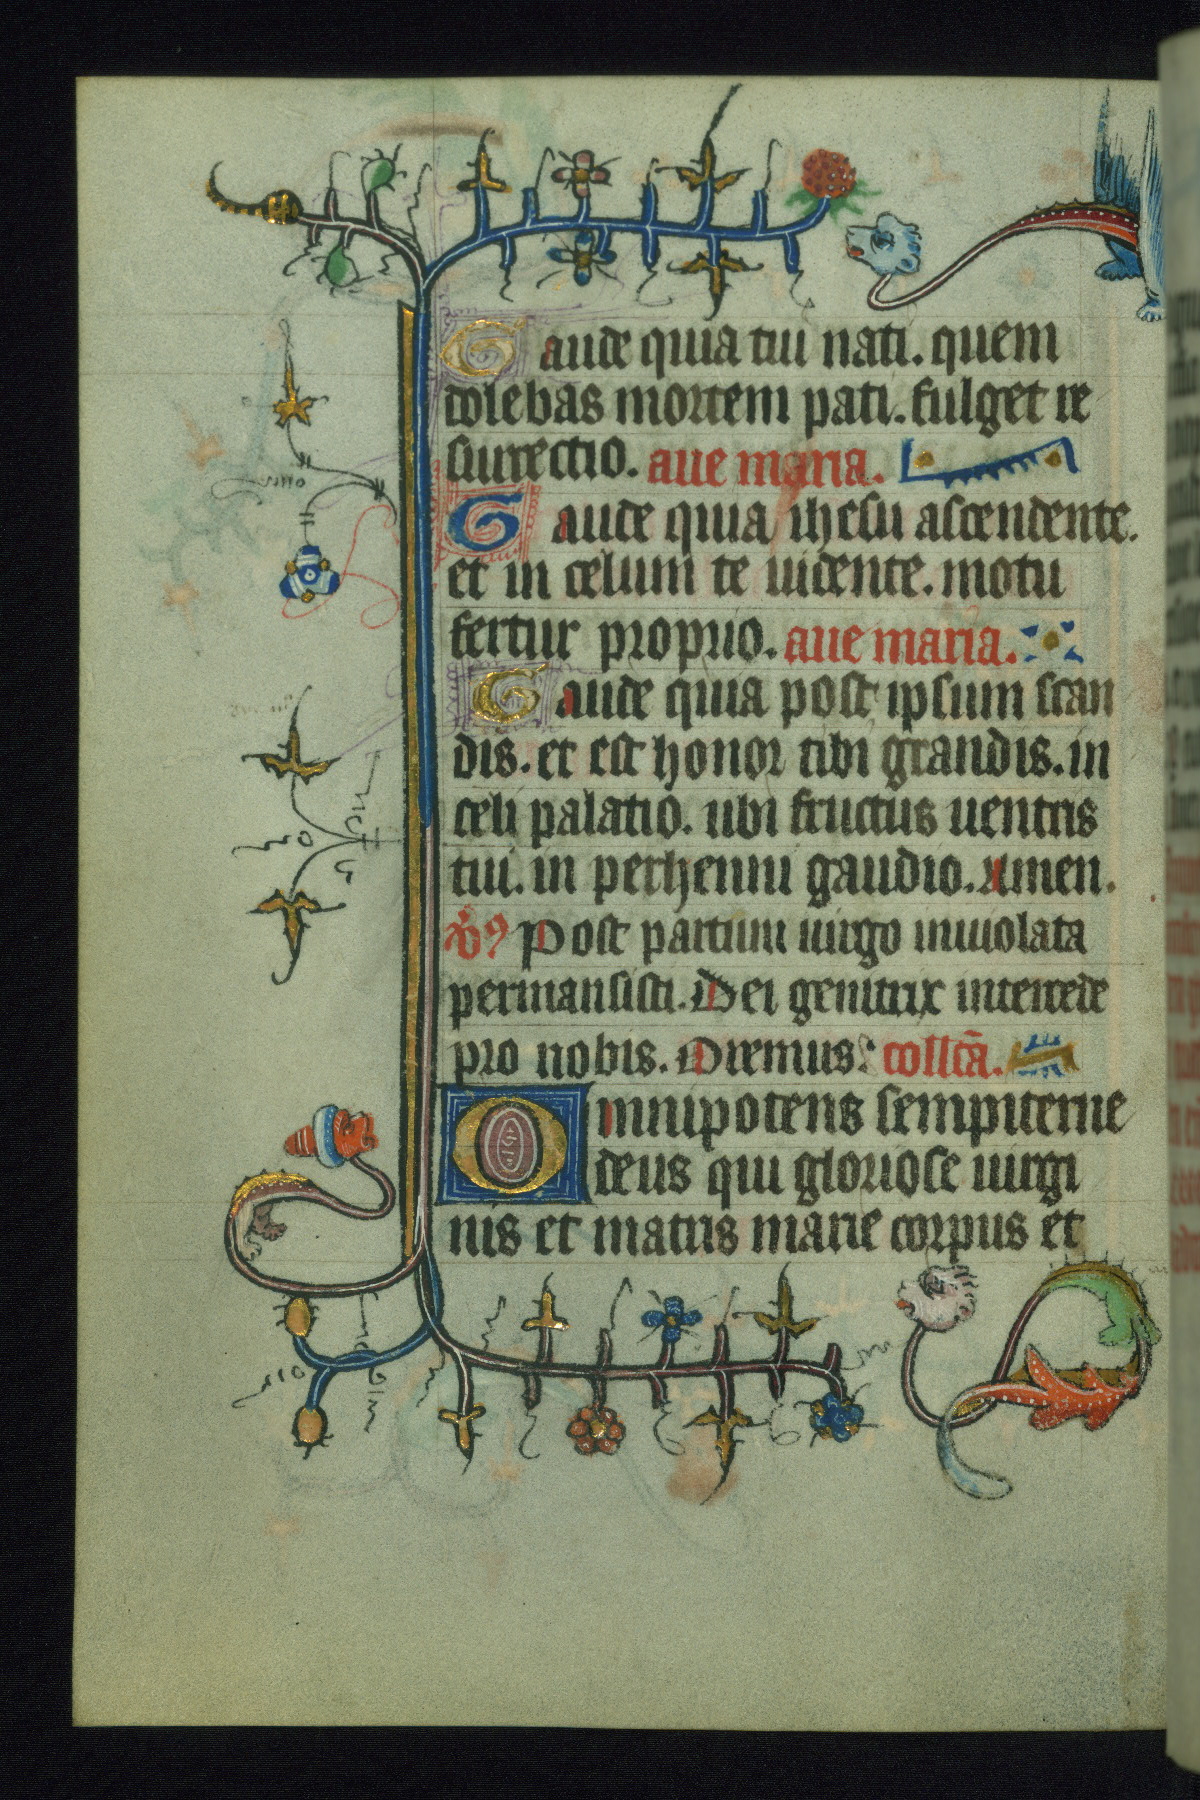 Gaude quia tui nati. quem
dolebas mortem pati. fulget re
surrectio. aue maria.
Gaude quia ihesu ascendente.
et in celum te uidente. motu
fertur proprio. aue maria.
Gaude quia post ipsum scan
dis. et est honor tibi grandis. in
celi palatio. ubi fructus uentris
tui. in perhenni gaudio. Amen.
Post partum uirgo inuiolata
permansisti. Dei genitrix intercede
pro nobis. Oremus: collcā.
Omnipotens sempiterne
deus qui gloriose uirgi
nis et matris marie corpus et